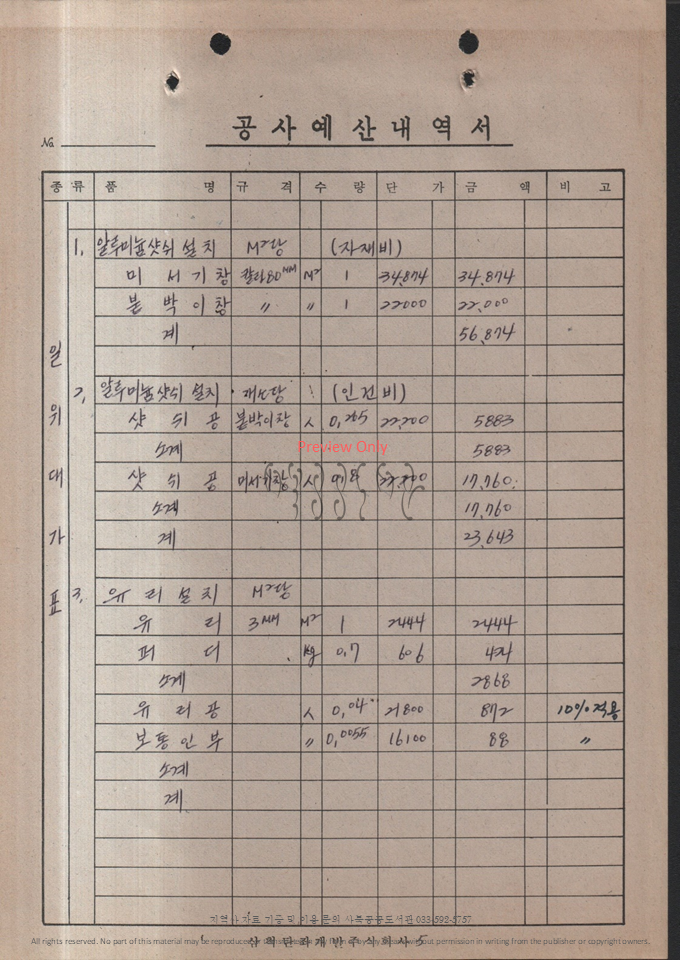 공사예산내역서
No
종류 품명 규격 수량 단가 금액 비고
일위대가표
1, 알루미늄샷쉬 설치 M²당 (자재비)
미서기창 칼라80MM M² 1 34,874 34,874
붙박이창 〃 〃 1 22000 22,000
계 56,874
2, 알루미늄샷쉬 설치 개소당 (인건비)
샷쉬공 붙박이창 人 0,265 22,200 5883
소계 5883
Preview Only
샷쉬공 미서기창 人 0,8 22,200 17,760
소계 17,760
계 23,643
3, 유리설치 M²당
유리 3MM M² 1 2444 2444
퍼더 kg 0,7 606 424
소계 2868
유리공 人 0,04 21800 872 10%적용
보통인부 〃 0,0055 16100 88 〃
소계
계
지역사 자료 기증 및 이용 문의 사북공공도서관 033-592-5757
삼척탄좌개발주식회사 5
All rights reserved. No part of this material may be reproduced or transmitted in any form or by any means without permission in writing from the publisher or copyright owners.